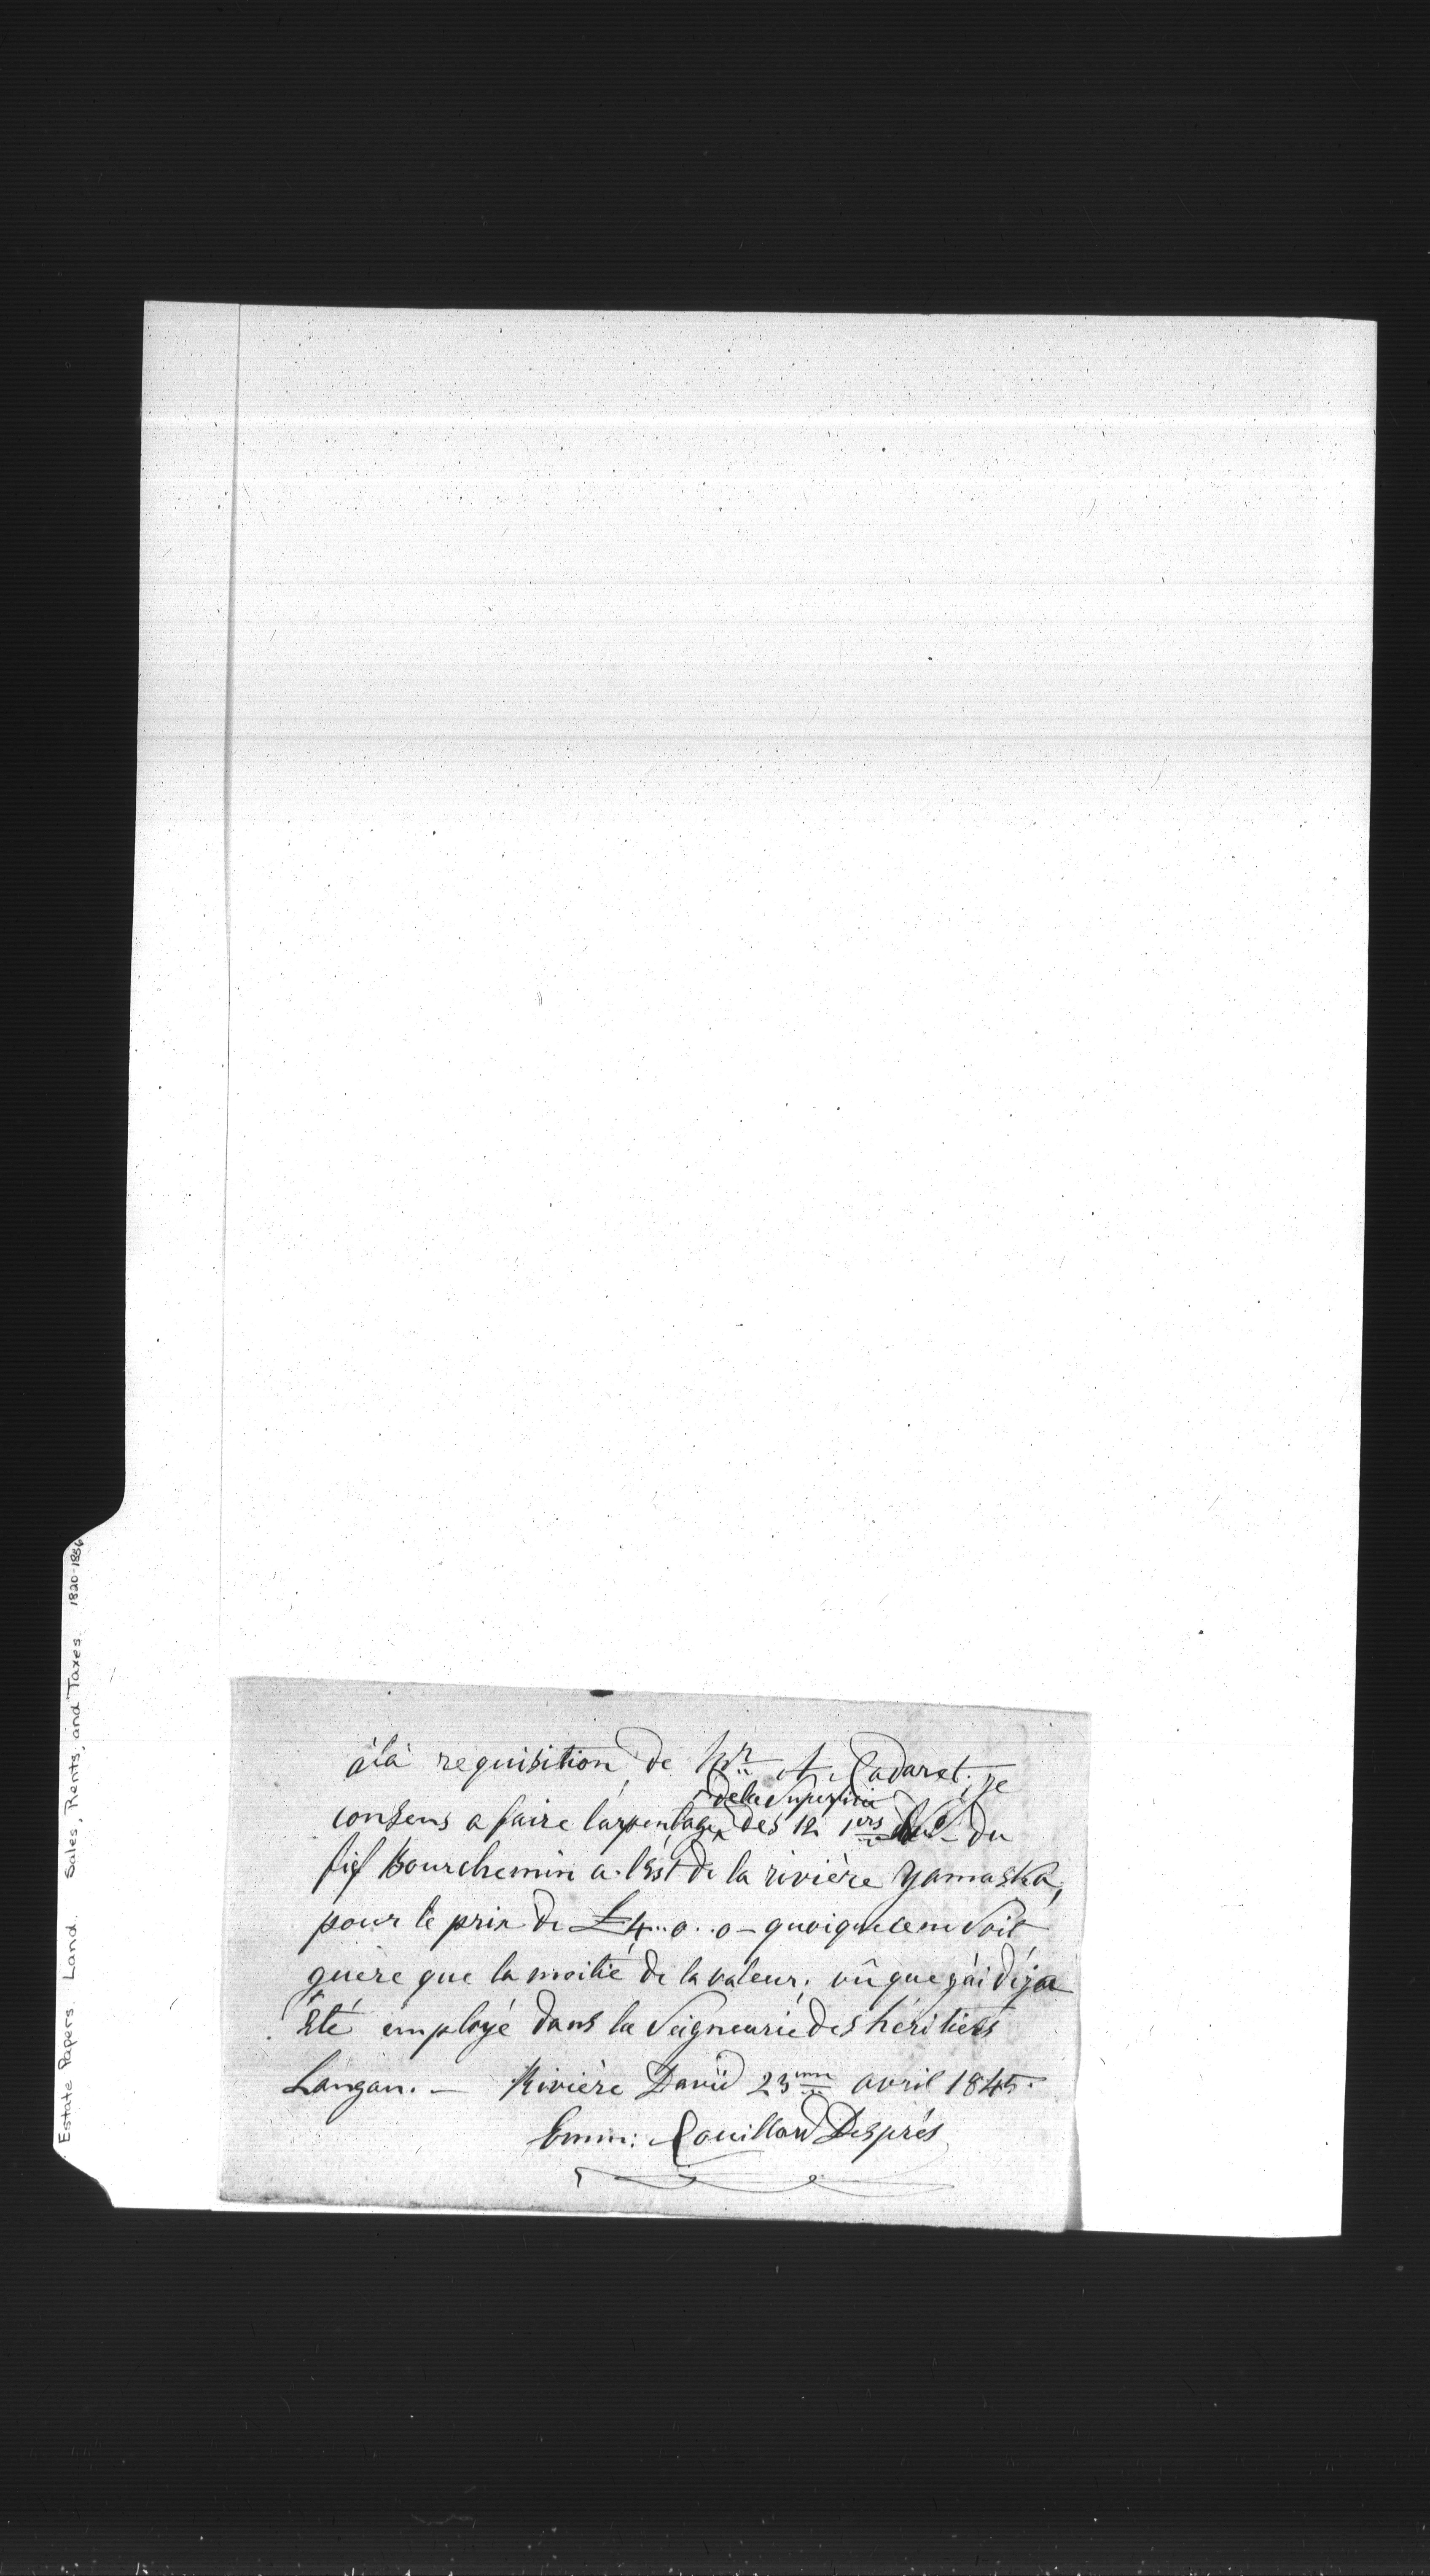 Estate Papers. Land. Sales, Rents, and Taxes. 1820-1856
à la requisition de Mr. A. Cadaret, je
de la Superficie
consens a faire l'arpentage des 12 1ers du
fief Bourchemin a l'Est de la rivière yamaska,
pour le prix de £4..0..0 - quoique ce ne Soit
guère que la moitié de la valeur, vû que j'ai déja
Eté employé dans la Seigneurie des héritiers
Langan. — Rivière David 23me avril 1845.
Emm: Couillard Després